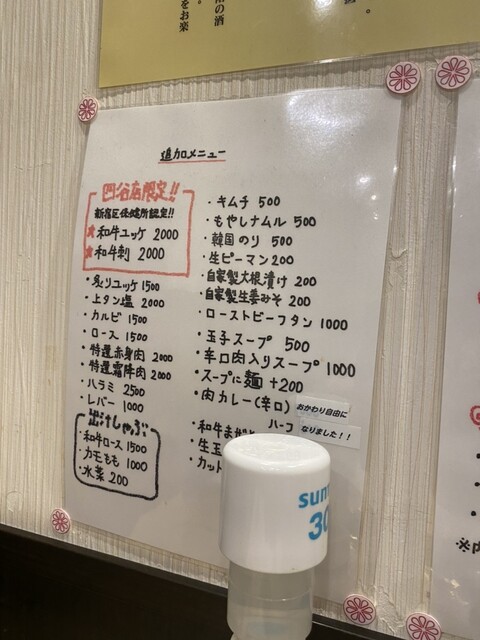 追加メニュー
四谷店限定!!
新宿区保健所認定!!
★和牛ユッケ 2000
★和牛刺 2000
・炙りユッケ 1500
・上タン塩 2000
・カルビ 1500
・ロース 1500
・特選赤身肉 2000
・特選霜降肉 2000
・ハラミ 2500
・レバー 1000
出汁しゃぶ
・和牛ロース 1500
・カモもも 1000
・水菜 200
・キムチ 500
・もやしナムル 500
・韓国のり 500
・生ピーマン 200
・自家製大根漬け 200
・自家製生姜みそ 200
・ローストビーフタン 1000
・玉子スープ 500
・辛口肉入りスープ 1000
・スープに麺 +200
・肉カレー(辛口)
おかわり自由に
なりました!!
ハーフ
・和牛まぜ
・生玉
・カット
sun
30
の酒
をお楽
※内